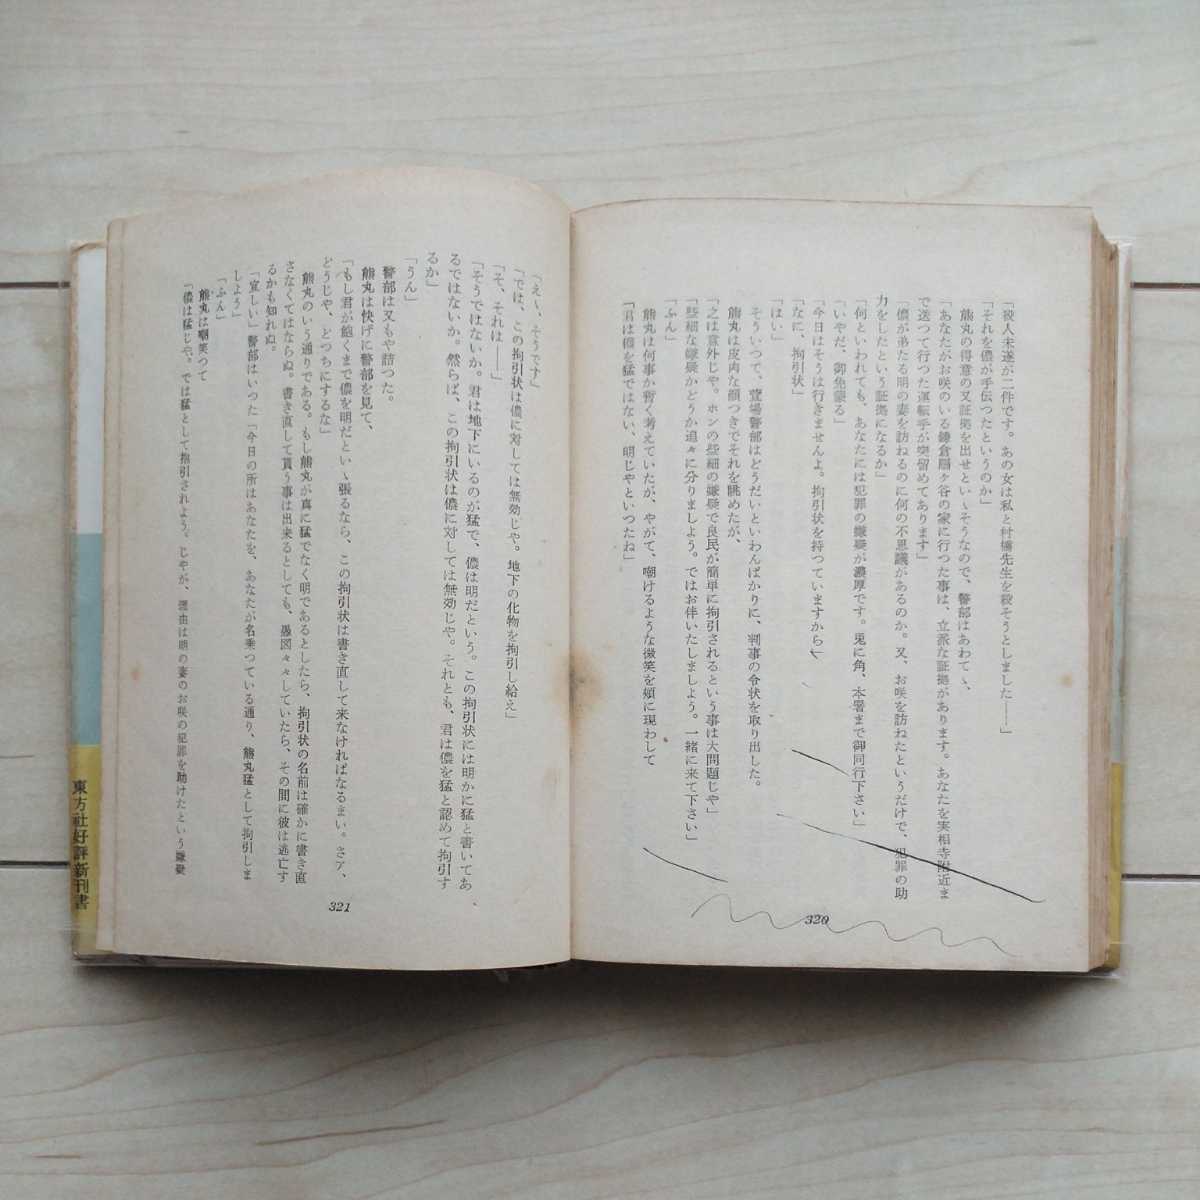 「殺人未遂が二件です。あの女は私と村橋先生を殺そうとしました――」
「それを儂が手伝つたというのか」
熊丸の得意の又証拠を出せといゝそうなので、警部はあわてゝ、
「あなたがお咲のいる鎌倉扇ヶ谷の家に行つた事は、立派な証拠があります。あなたを実相寺附近ま
で送つて行つた運転手が突留めてあります」
「儂が弟たる明の妻を訪ねるのに何の不思議があるのか。又、お咲を訪ねたというだけで、犯罪の助
力をしたという証拠になるか」
「何といわれても、あなたには犯罪の嫌疑が濃厚です。兎に角、本署まで御同行下さい」
「いやだ、御免蒙る」
「今日はそうは行きませんよ。拘引状を持つていますから」
「なに、拘引状」
「はい」
そういつて、萱場警部はどうだいといわんばかりに、判事の令状を取り出した。
熊丸は皮肉な顔つきでそれを眺めたが、
「之は意外じや。ホンの些細の嫌疑で良民が簡単に拘引されるという事は大問題じや」
「些細な嫌疑かどうか追々に分りましよう。ではお伴いたしましよう。一緒に来て下さい」
「ふん」
熊丸は何事か暫く考えていたが、やがて、嘲けるような微笑を頬に現わして
「君は儂を猛ではない、明じやといつたね」
320
「えゝ、そうです」
「では、この拘引状は儂に対しては無効じや。地下の化物を拘引し給え」
「そ、それは――」
「そうではないか。君は地下にいるのが猛で、儂は明だという。この拘引状には明かに猛と書いてあ
るではないか。然らば、この拘引状は儂に対しては無効じや。それとも、君は儂を猛と認めて拘引す
るか」
「うん」
警部は又もや詰つた。
熊丸は快げに警部を見て、
「もし君が飽くまで儂を明だといゝ張るなら、この拘引状は書き直して来なければなるまい。さア、
どうじや、どつちにするな」
熊丸のいう通りである。もし熊丸が真に猛でなく明であるとしたら、拘引状の名前は確かに書き直
さなくてはならぬ。書き直して貰う事は出来るとしても、愚図々々していたら、その間に彼は逃亡す
るかも知れぬ。
「宜しい」警部はいつた「今日の所はあなたを、あなたが名乗つている通り、熊丸猛として拘引しま
しよう」
「ふん」
熊丸は嘲笑つて
「儂は猛じや。では猛として拘引されよう。じやが、理由は明の妻のお咲の犯罪を助けたという嫌疑
321
東方社好評新刊書